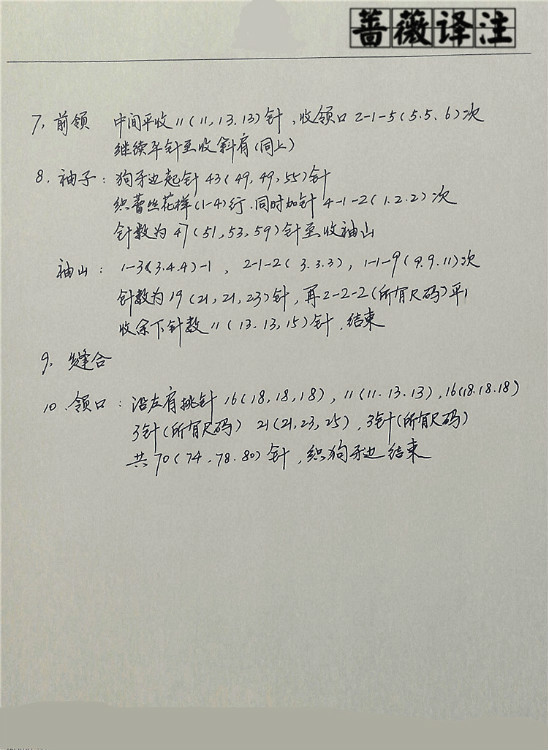 蔷薇译注
7, 前领 中间平收11(11,13.13)针,收领口2-1-5(5.5.6)次
继续平针至收斜肩(同上)
8. 袖子: 狗牙边起针43(49,49,55)针
织蕾丝花样(1-4)行.同时加针4-1-2(1.2.2)次
针数为47(51,53,59)针至收袖山
袖山: 1-3(3.4.4)-1 , 2-1-2(3.3.3), 1-1-9(9.9.11)次
针数为19(21,21,23)针,再2-2-2(所有尺码)平1
收余下针数11(13.13,15)针,结束
9, 缝合
10.领口: 沿左肩挑针16(18,18,18),11(11.13.13),16(18.18.18)
3针(所有尺码) 21(21,23,25),3针(所有尺码)
共70(74,78.80)针,织狗牙边结束